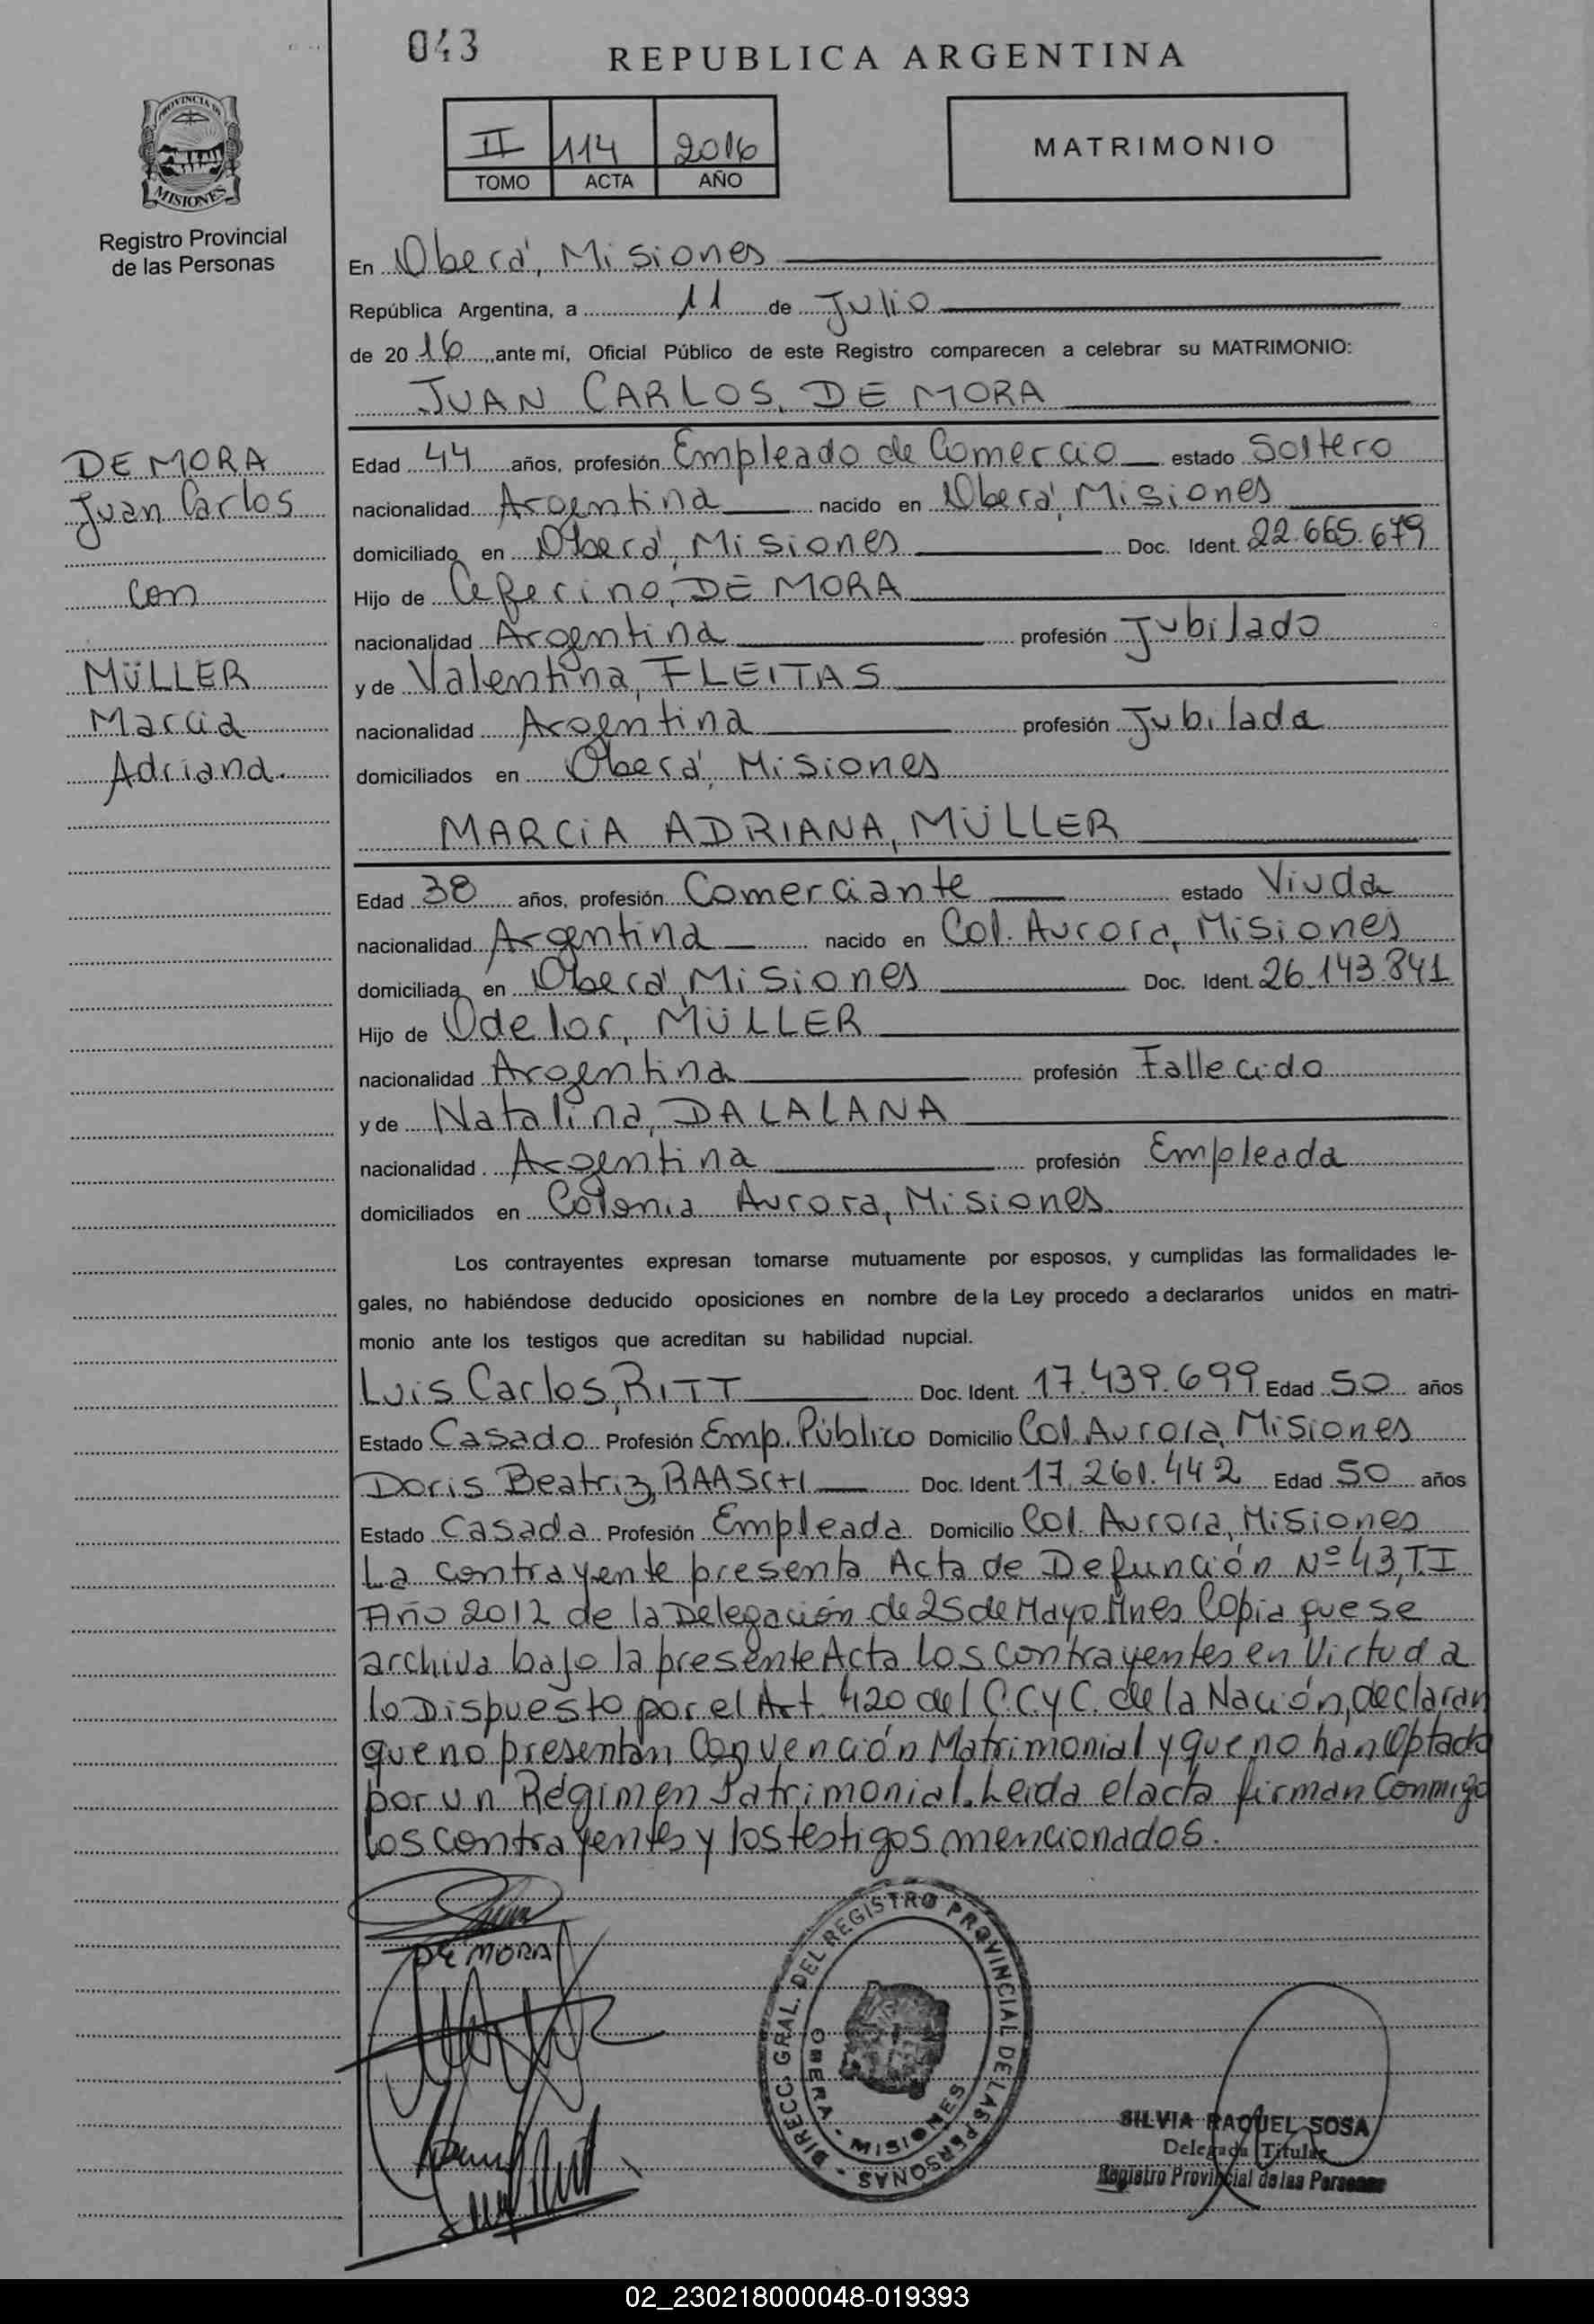 043
REPUBLICA ARGENTINA
PROVINCIA DE
MISIONES
Registro Provincial
de las Personas
II 114 2016
TOMO ACTA AÑO
MATRIMONIO
En Oberá, Misiones
República Argentina, a 11 de Julio
de 2016, ante mí, Oficial Público de este Registro comparecen a celebrar su MATRIMONIO:
JUAN CARLOS, DE MORA
DE MORA
Juan Carlos
con
MÜLLER
Marcia
Adriana.
Edad 44 años, profesión Empleado de Comercio estado Soltero
nacionalidad Argentina nacido en Oberá, Misiones
domiciliado en Oberá, Misiones Doc. Ident. 22.665.679
Hijo de Ceferino, DE MORA
nacionalidad Argentina profesión Jubilado
y de Valentina, FLEITAS
nacionalidad Argentina profesión Jubilada
domiciliados en Oberá, Misiones
MARCIA ADRIANA, MÜLLER
Edad 38 años, profesión Comerciante estado Viuda
nacionalidad Argentina nacido en Col. Aurora, Misiones
domiciliada en Oberá, Misiones Doc. Ident. 26.143.841
Hijo de Odelor, MÜLLER
nacionalidad Argentina profesión Fallecido
y de Natalina, DALALANA
nacionalidad Argentina profesión Empleada
domiciliados en Colonia Aurora, Misiones
Los contrayentes expresan tomarse mutuamente por esposos, y cumplidas las formalidades le-
gales, no habiéndose deducido oposiciones en nombre de la Ley procedo a declararlos unidos en matri-
monio ante los testigos que acreditan su habilidad nupcial.
Luis Carlos, RITT Doc. Ident. 17.439.699 Edad 50 años
Estado Casado Profesión Emp. Público Domicilio Col. Aurora, Misiones
Doris Beatriz, RAASCH Doc. Ident. 17.261.442 Edad 50 años
Estado Casada Profesión Empleada Domicilio Col. Aurora, Misiones
La contrayente presenta Acta de Defunción Nº 43, T.I
Año 2012 de la Delegación de 25 de Mayo Mnes Copia que se
archiva bajo la presente Acta. Los contrayentes en Virtud a
lo Dispuesto por el Art. 420 del C.C.y C. de la Nación, declaran
que no presentan Convención Matrimonial y que no han Optado
por un Régimen Patrimonial. Leida el acta firman Conmigo
los contrayentes y los testigos mencionados.
DE MORA
DIRECC. GRAL. DEL REGISTRO PROVINCIAL DE LAS PERSONAS
OBERA - MISIONES
SILVIA RAQUEL SOSA
Delegada Titular
Registro Provincial de las Personas
02_230218000048-019393